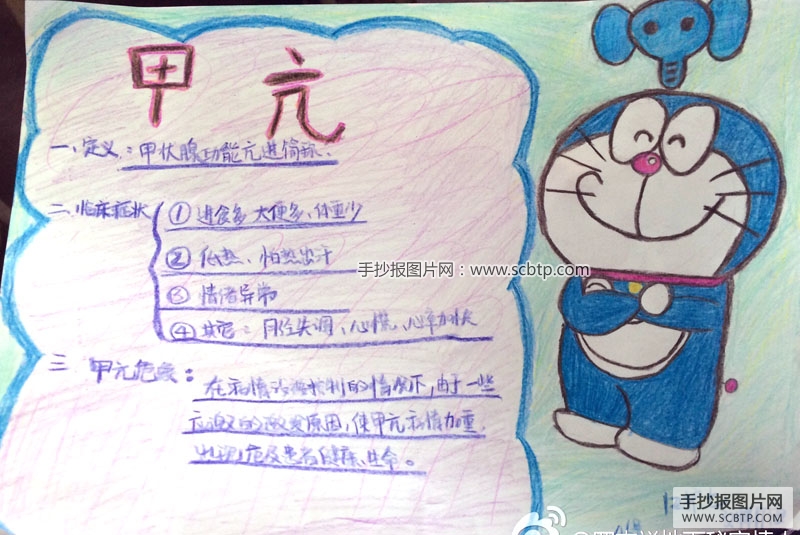 甲亢
一、定义：甲状腺功能亢进简称.
二、临床症状
① 进食多 大便多、体重少
② 低热、怕热出汗
③ 情绪异常
④ 其它：月经失调、心慌、心率加快
手抄报图片网：www.scbtp.com
三 甲亢危象：
在病情没有控制的情况下,由于一些
应激的激发原因,使甲亢病情加重,
出现危及患者健康、生命。
手抄报图片网
WWW.SCBTP.COM